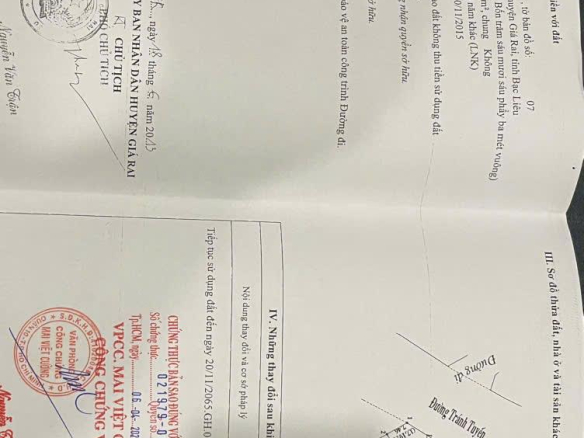 liền với đất
, tờ bản đồ số: 07
huyện Giá Rai, tỉnh Bạc Liêu
Bốn trăm sáu mươi sáu phẩy ba mét vuông)
m², chung Không
năm khác (LNK)
0/11/2015
ao đất không thu tiền sử dụng đất
g nhận quyền sở hữu.
ở hữu.
bảo vệ an toàn công trình Đường đi.
ngày 18 tháng 6 năm 2013
Y BAN NHÂN DÂN HUYỆN GIÁ RAI
CHỦ TỊCH
PHÓ CHỦ TỊCH
Nguyễn Văn
III. Sơ đồ thửa đất, nhà ở và tài sản khác
Đường đi
Đường Tránh Tuyến
IV. Những thay đổi sau khi
Nội dung thay đổi và cơ sở pháp lý
Tiếp tục sử dụng đất đến ngày 20/11/2065.
CHỨNG THỰC BẢN SAO ĐÚNG VỚ
Số chứng thực: 021979 Quyển số
Tp.HCM, ngày 06-04-202
VPCC. MAI VIỆT C
CÔNG CHỨNG V
VĂN PHÒNG
CÔNG CHỨNG
MAI VIỆT CƯỜNG
Nguyễn